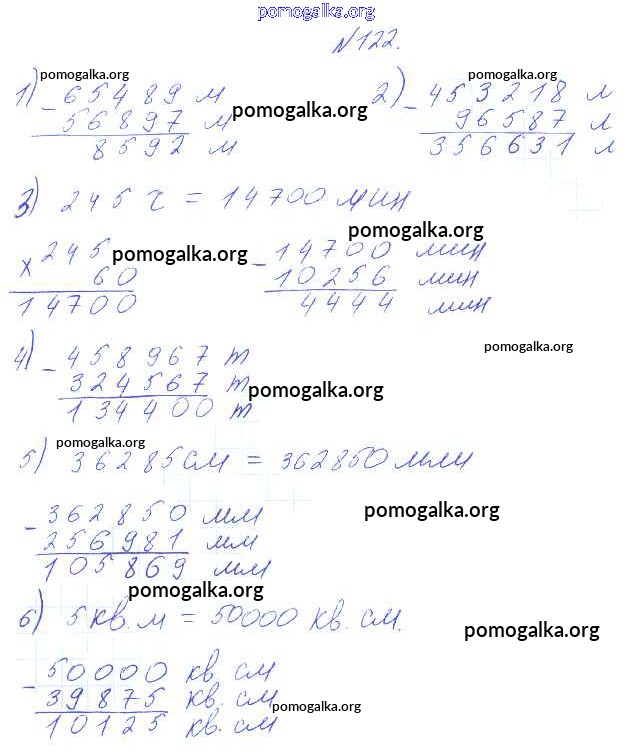 pomogalka.org
№122.
1) - 65489 м
56897 м
8592 м
2) - 453218 л
96587 л
356631 л
pomogalka.org
pomogalka.org
pomogalka.org
3) 245 ч = 14700 мин
x 245
60
14700
- 14700 мин
10256 мин
4444 мин
pomogalka.org
pomogalka.org
pomogalka.org
4) - 458967 т
324567 т
134400 т
pomogalka.org
pomogalka.org
5) 36285 см = 362850 мм
- 362850 мм
256981 мм
105869 мм
pomogalka.org
pomogalka.org
6) 5 кв. м = 50000 кв. см.
pomogalka.org
- 50000 кв. см
39875 кв. см
10125 кв. см
pomogalka.org